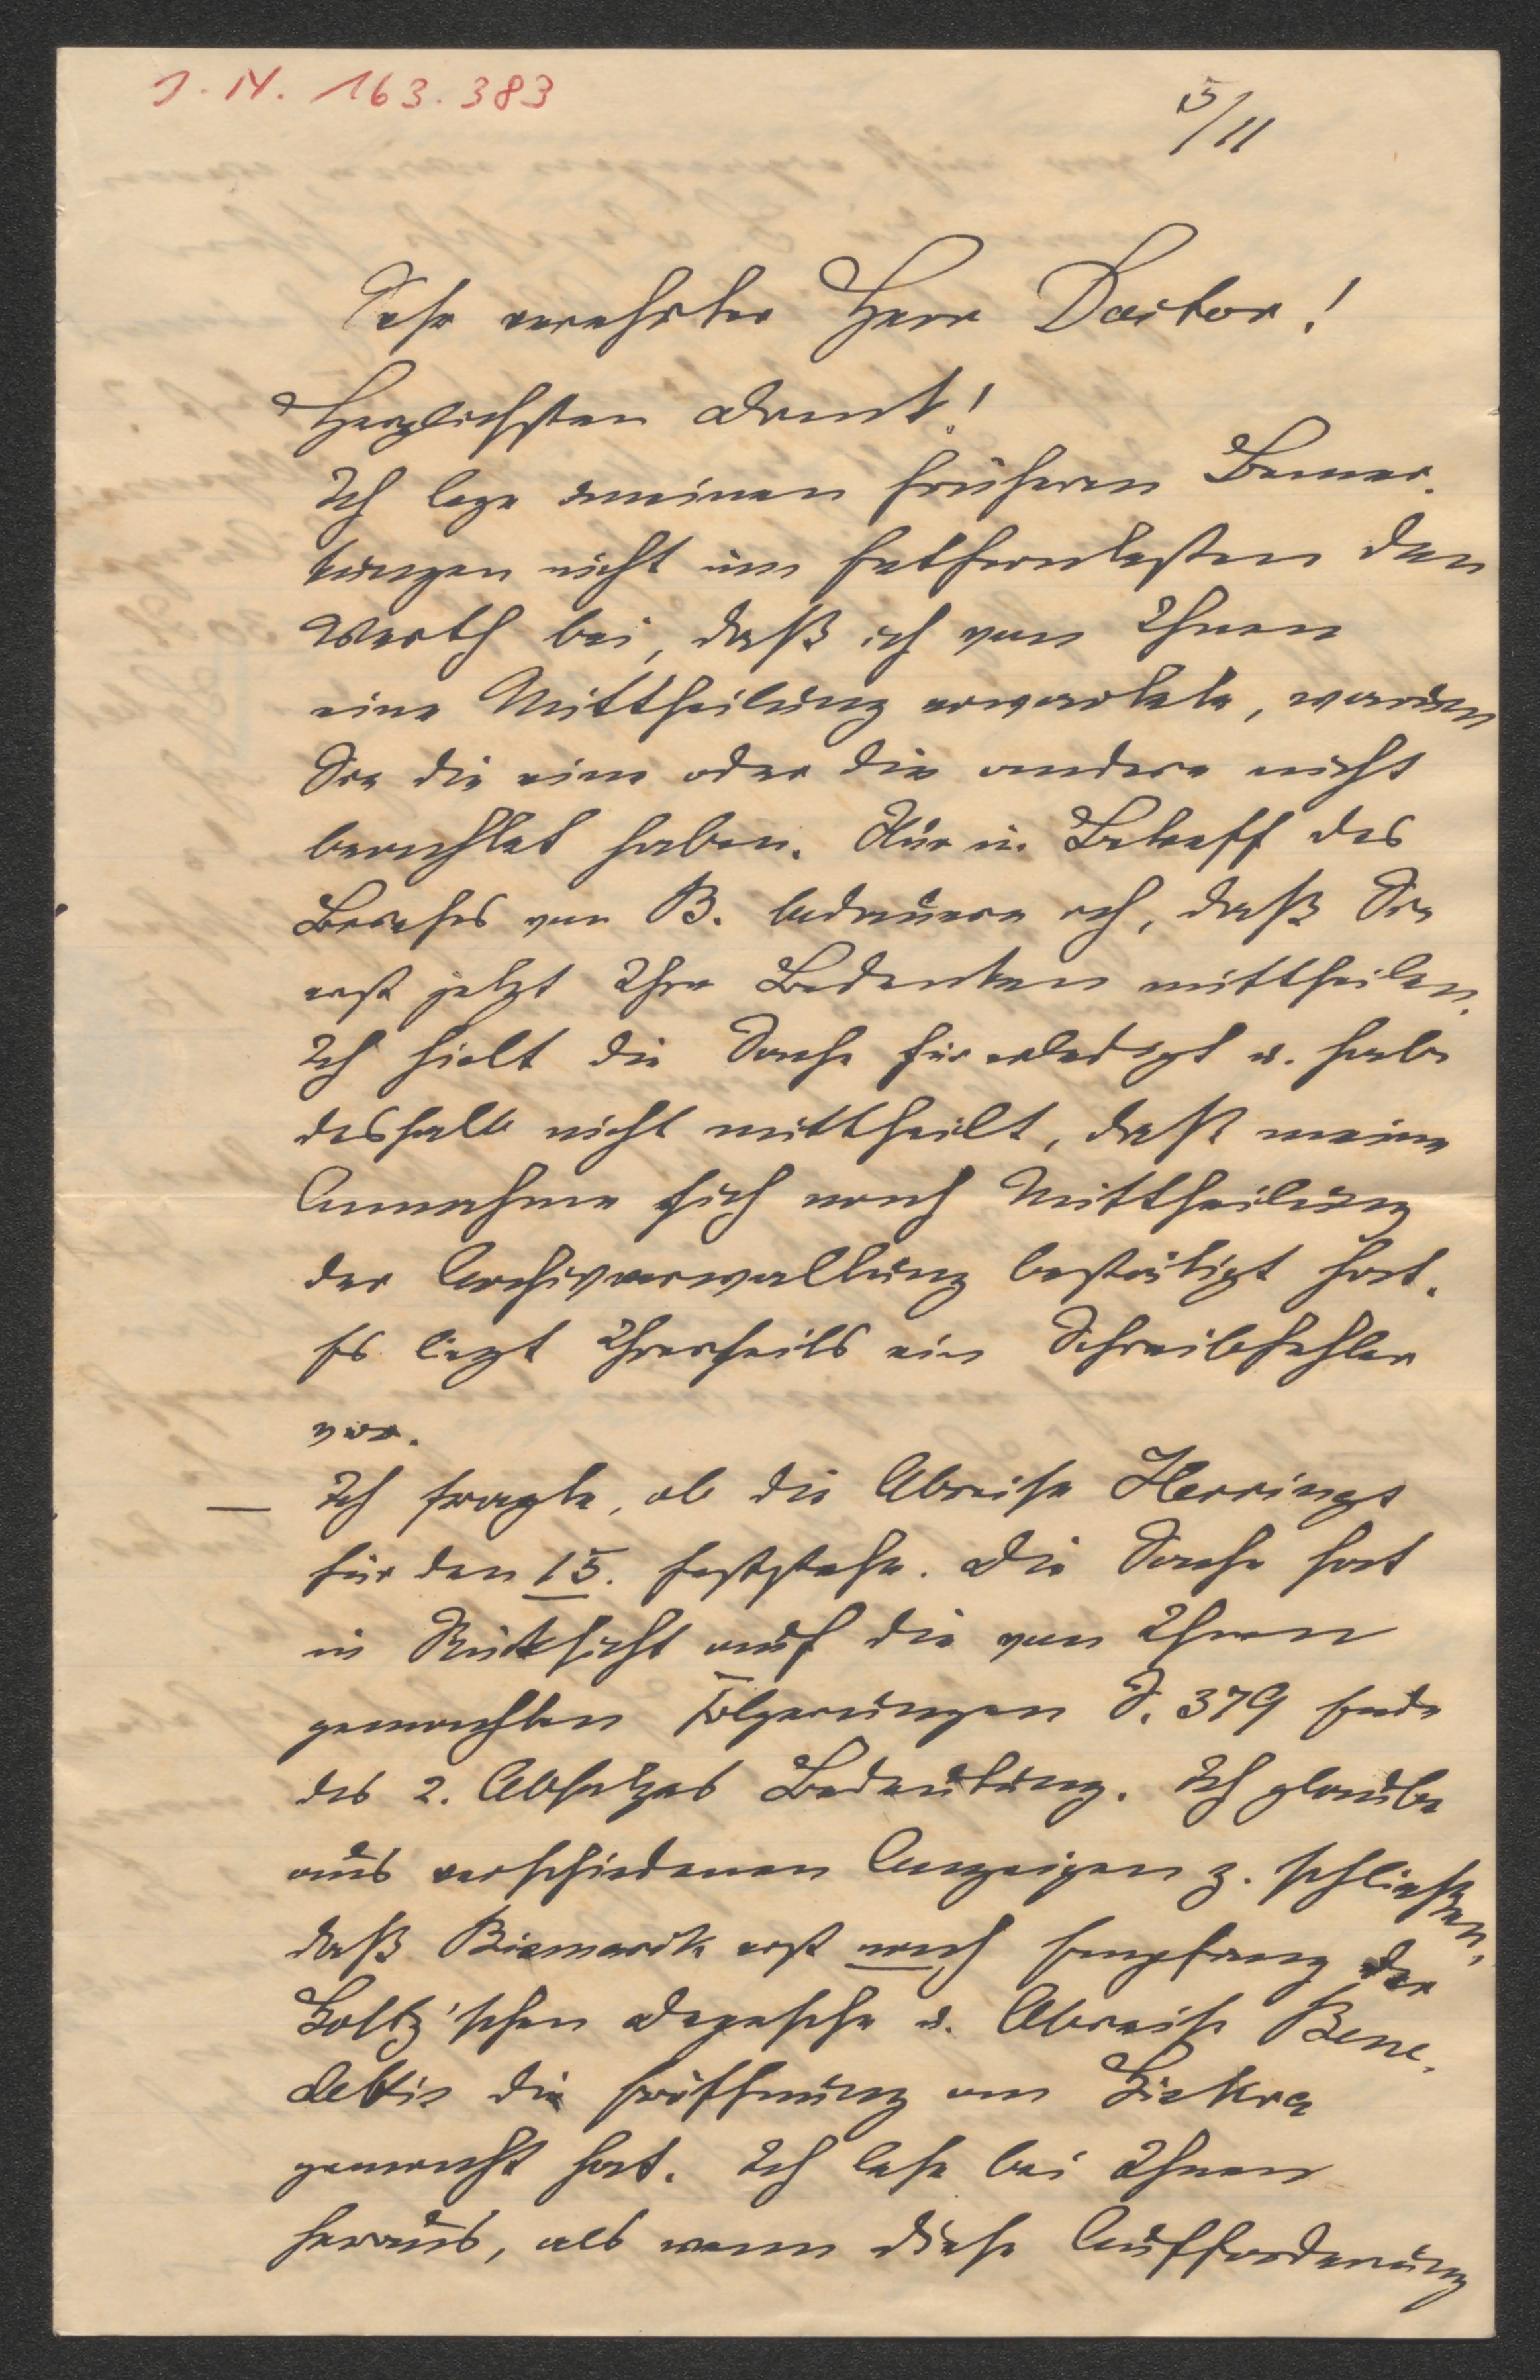 J. N. 163.383
5/11
Sehr verehrter Herr Doctor!
Herzlichsten Dank!
Ich lege meinen früheren Bemer-
kungen nicht im Entferntesten den
Werth bei, daß ich von Ihnen
eine Mittheilung erwartete, warum
Sie die eine oder die andere nicht
beachtet haben. Nur in Betreff des
von B. bedauere ich, daß Sie
erst jetzt Ihre Bedenken mittheilen.
Ich hielt die Sache für erledigt u. habe
deshalb nicht mittheilt, daß meine
Annahme sich nach Mittheilung
der Archivverwaltung bestätigt hat.
Es liegt Ihrerseits ein Schreibfehler
vor.
— Ich fragte, ob die Abreise Herrings
für den 15. feststehe. Die Sache hat
in Rücksicht auf die von Ihnen
gemachten Folgerungen S. 379 Ende
des 2. Absatzes Bedeutung. Ich glaube
aus verschiedenen Anzeigen z. schließen,
daß Bismarck erst nach Empfang der
Goltz'schen Depesche u. Abreise Bene-
dettis die Eröffnung an Giskra
gemacht hat. Ich lese bei Ihnen
heraus, als wenn diese Aufforderung